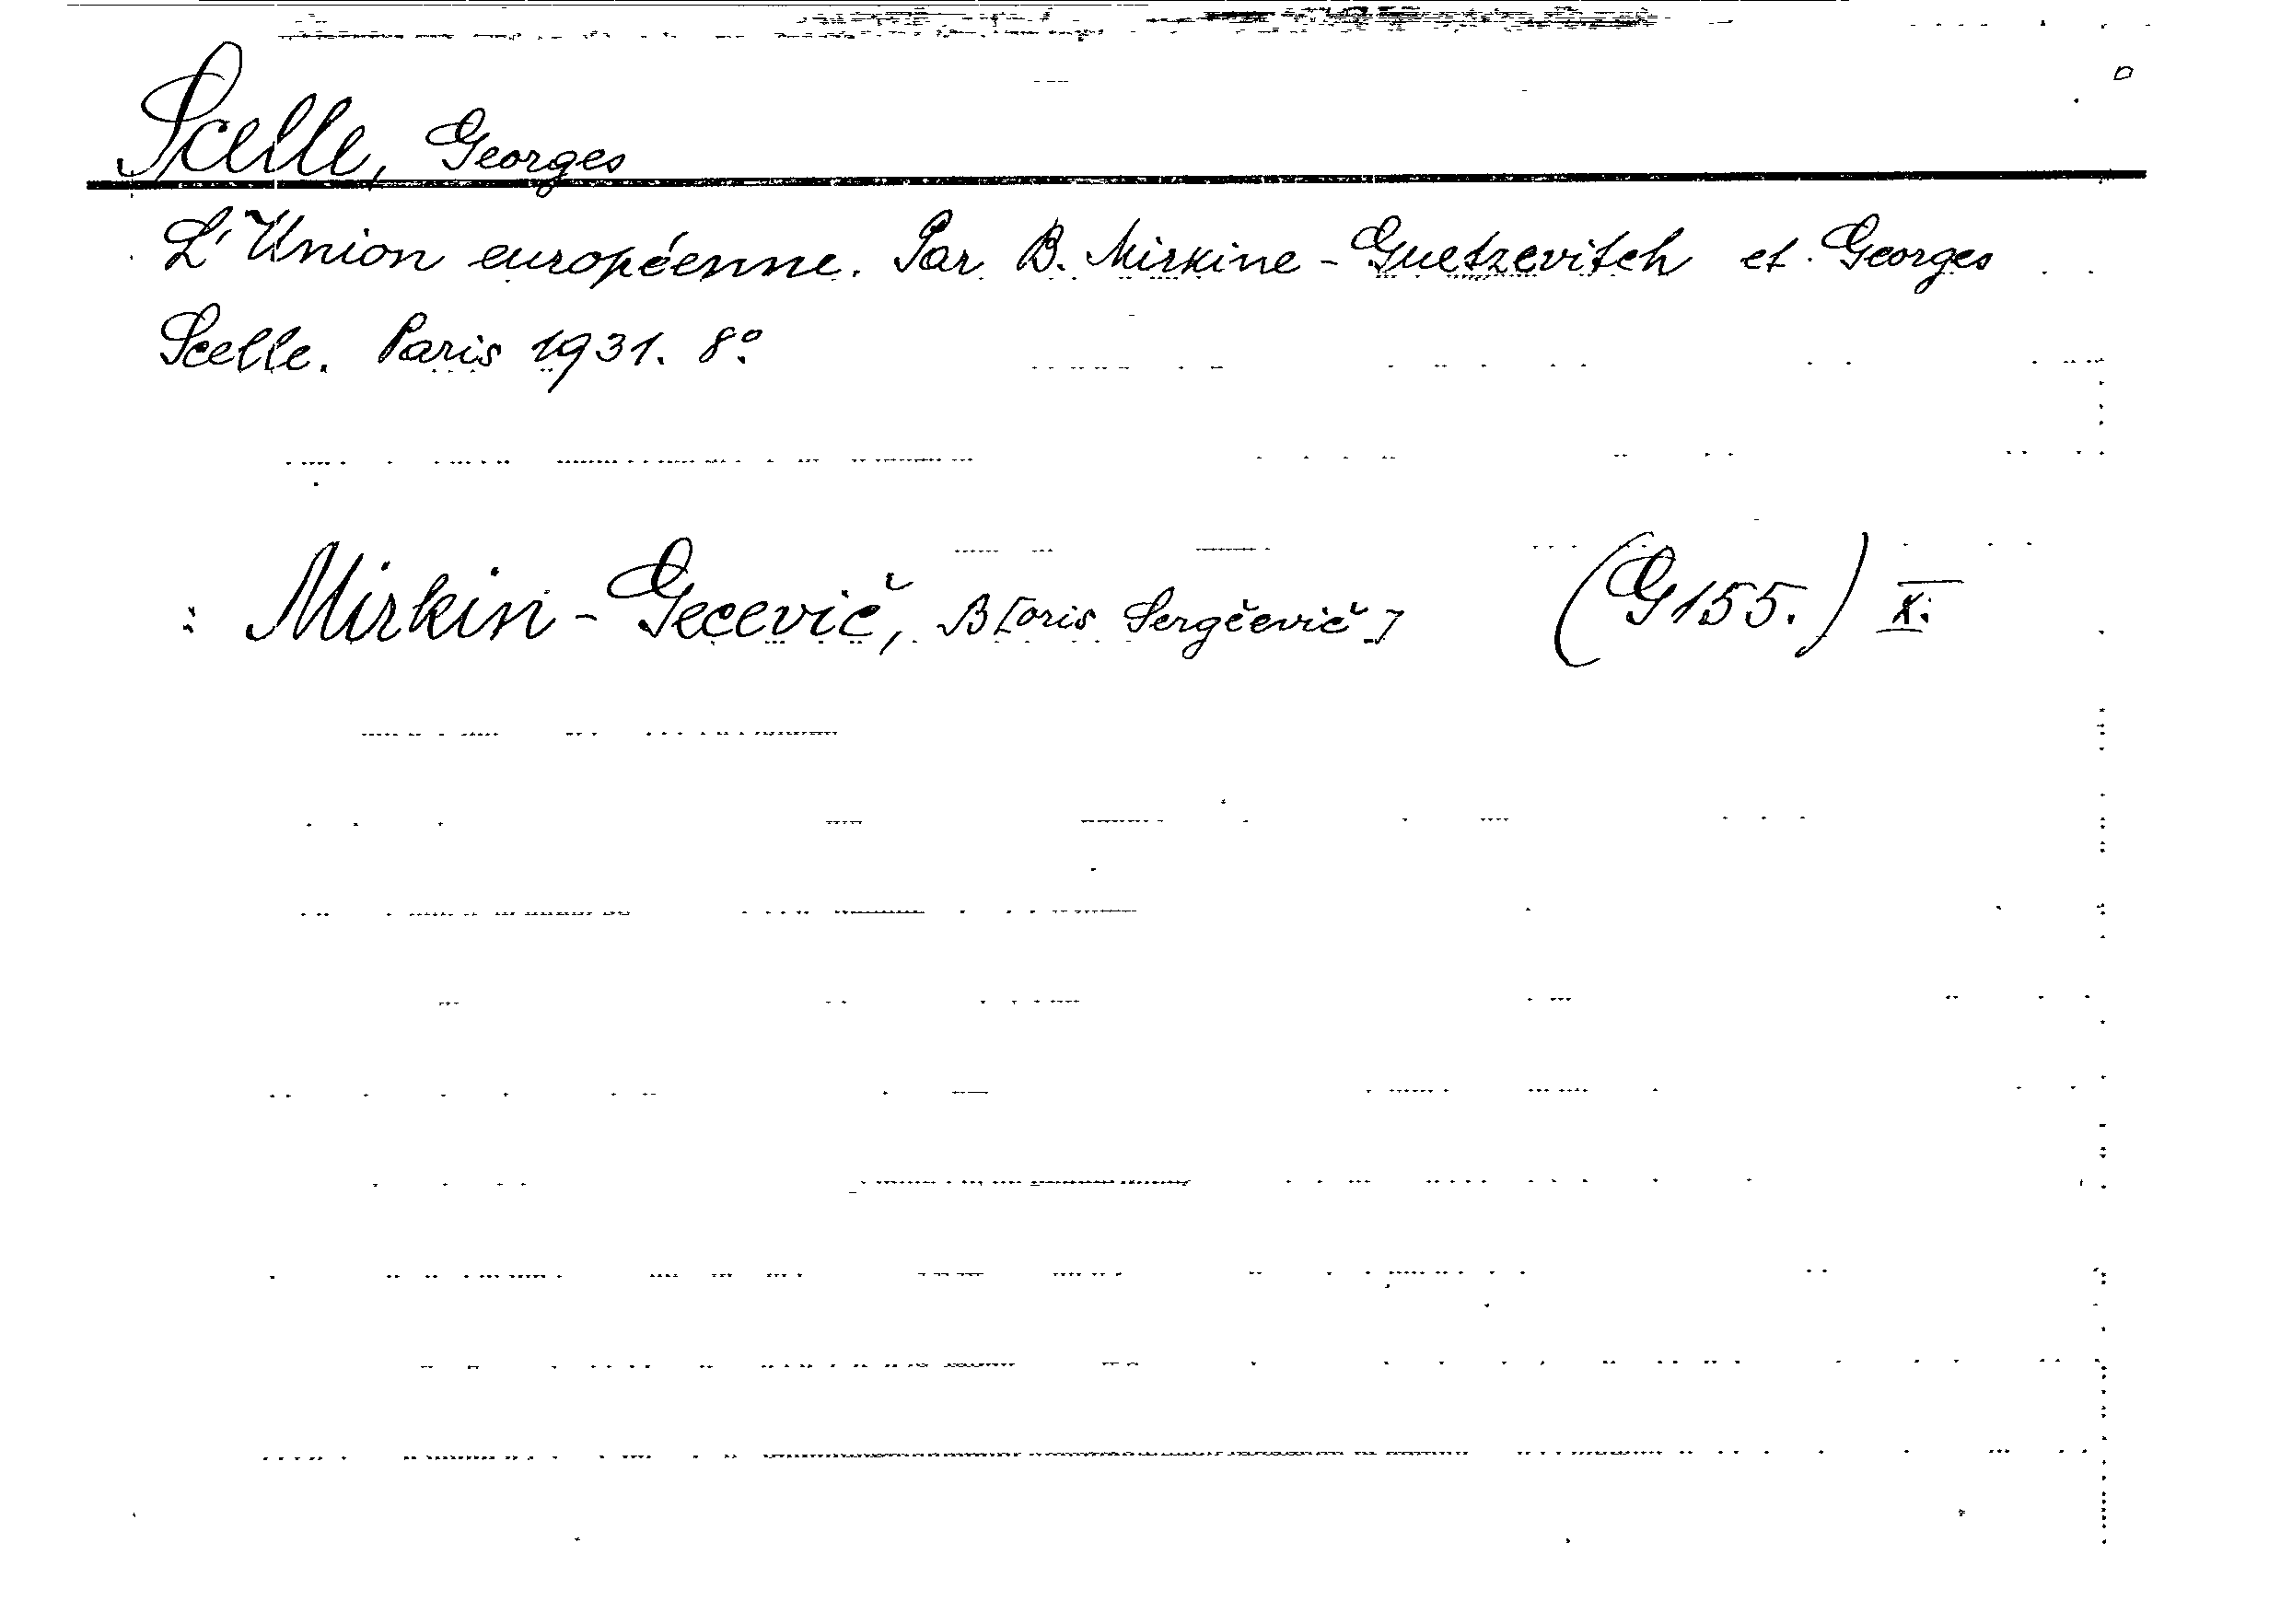 Scelle, Georges
L'Union européenne. Par B. Mirkine-Guetzevitch et Georges
Scelle. Paris 1931. 8°.
: Mirkin-Gecevič, B[oris Sergěevič] (G 155.) X.